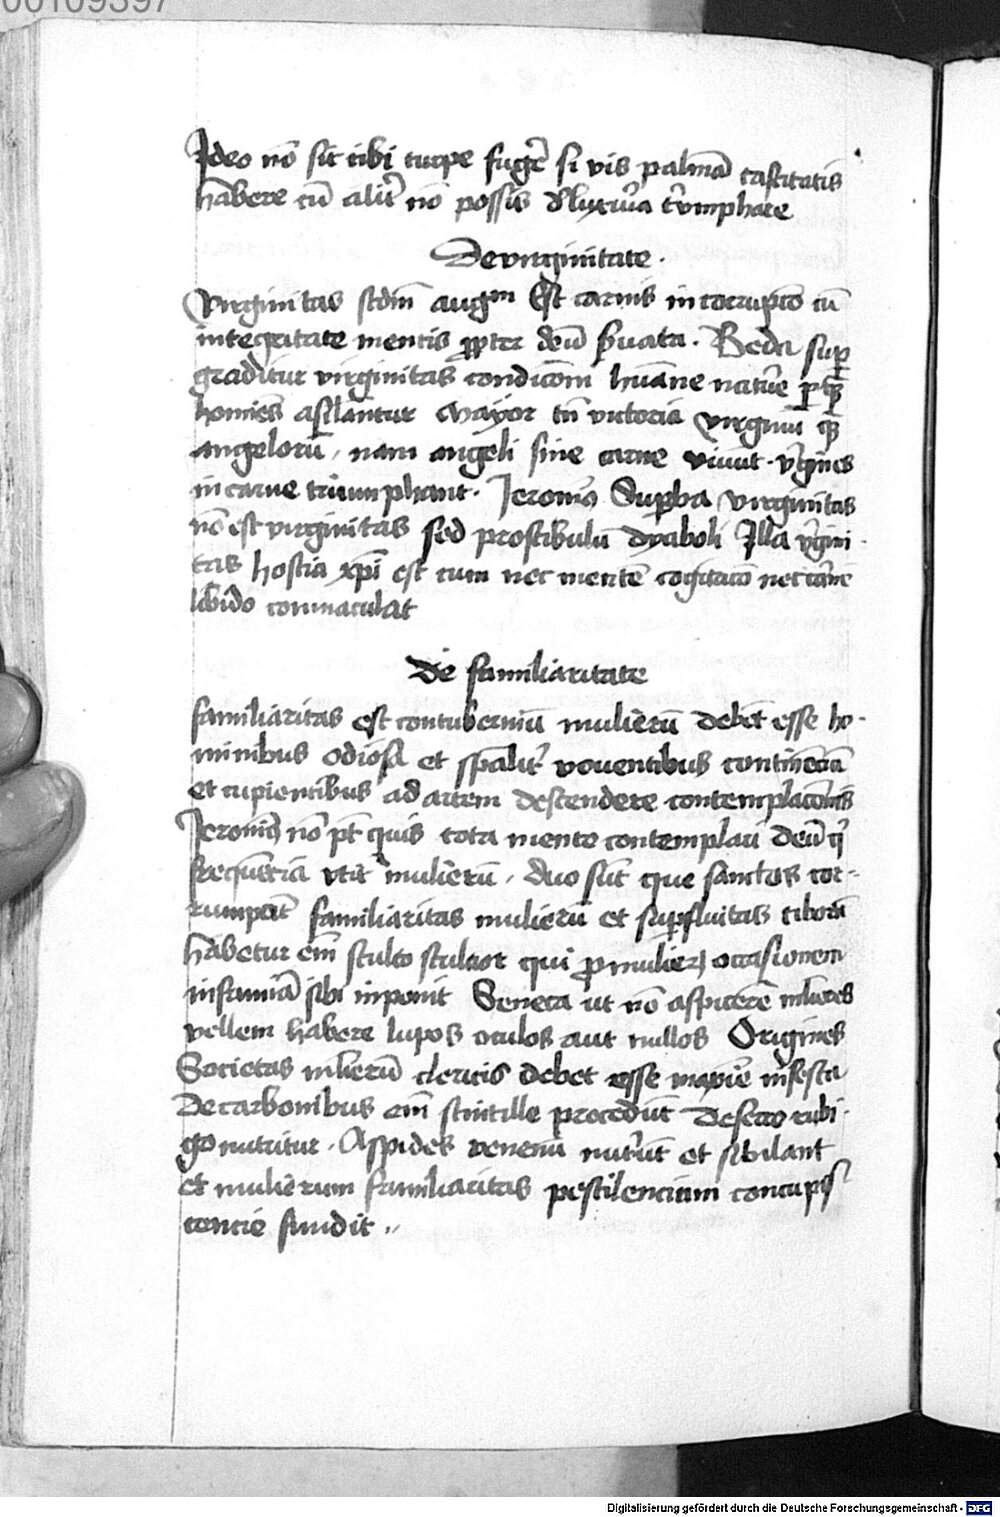 00109397
Ideo nō sit tibi turpe fugē si vis palmā castitatis
habere cū alit' nō possis d' luxuria triumphare
De virginitate.
Virginitas scdm augm Est carnis incorrupcō cū
integritate mentis propter deū seruata. Beda sup
graditur virginitas condicōm humane nature
homīes asilantur Mayor tn victoria virginū q̄
angelorū, nam angeli sine carne viuūt. virgīes
in carne triumphant. Jeronim9 Supba virginitas
nō est virginitas sed prostibulū dyaboli Illa virgini
tas hostia xpi est cum nec mentē cogitacō nec carnē
libido conmaculat
De familiaritate
familiaritas est contuberniū mulierū debet esse ho-
minibus odiosa et spālit' vouentibus continēciā
et cupientibus ad artem descendere contemplacōnis
Jeronim9 nō pt quis tota mente contemplari deū q'
frequēciā vtit' mulierū. duo sūt que sanctos cor-
rumpūt familiaritas mulierū et supfluitas ciborū
habetur em stulto stulcior qui pro mulier occasionem
infamiā sibi inponit Seneca ut nō aspicerē mlieres
vellem habere lupos oculos aut nullos Origines
Societas mlierū clericis debet esse maxīe infesta
De carbonibus em scintille procedūt de ferro rubi-
go nutritur. Aspides venenū nutriūt et sibilant
et mulierum familiaritas pestilencium concupis
cencie fundit
Digitalisierung gefördert durch die Deutsche Forschungsgemeinschaft - DFG